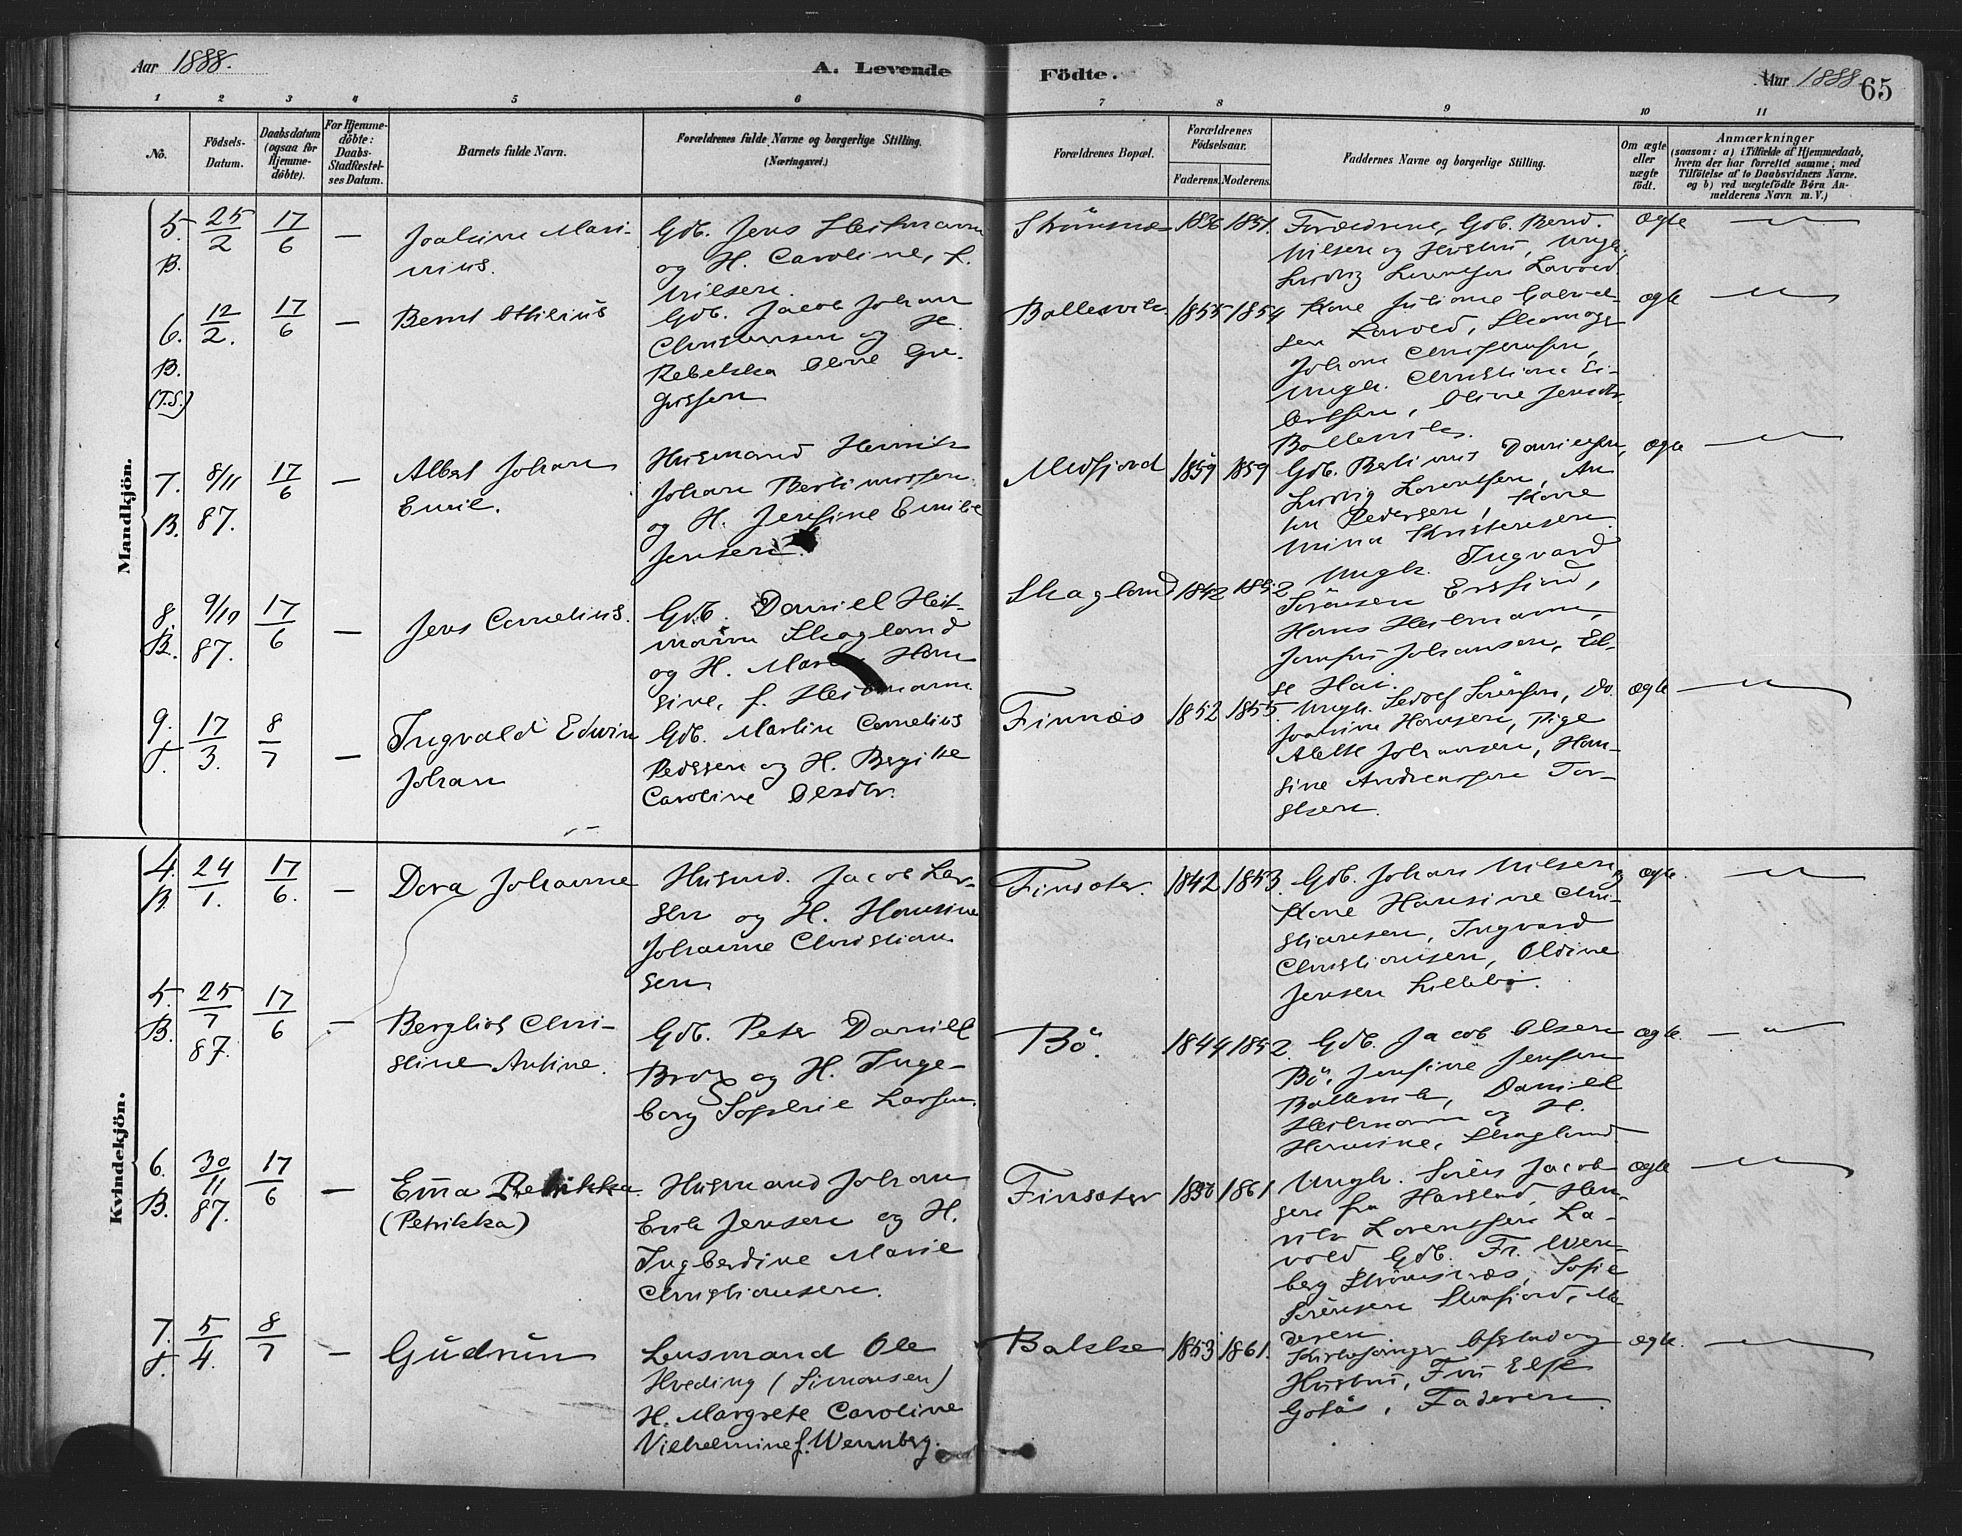 Aar 1888.
A. Levende Födte.
Aar 1888
65
1 2 3 4 5 6 7 8 9 10 11
No.
Födsels-Datum.
Daabsdatum (ogsaa for Hjemme-döbte).
For Hjemme-döbte: Daabs-Stadfæstel-ses Datum.
Barnets fulde Navn.
Forældrenes fulde Navne og borgerlige Stilling.
(Næringsvei.)
Forældrenes Bopæl.
Forældrenes Födselsaar.
Faderens. Moderens.
Faddernes Navne og borgerlige Stilling.
Om ægte eller uægte födt.
Anmærkninger
(saasom: a) i Tilfælde af Hjemmedaab,
hvem der har forrettet samme, med
Tilföielse af to Daabsvidners Navne.
og b) ved uægtefödte Børn An-
melderens Navn m. V.)
Mandkjön.
5. B. 25/2 17/6 —
Joakim Mari-
nius.
Gdb. Jens Heitmann
og H. Caroline, f.
Nilsen.
Strömnæs 1836 1851.
Forældrene, Gdb. Bernt
Nilsen og Hustru, Ungk.
Ludvig Lorentsen Lavold
ægte
6. B. (T.S.) 12/2. 17/6 —
Bernt Othilius
Gdb. Jacob Johan
Christensen og H.
Rebekka Oline Gre-
gussen
Ballesvik 1855 1854
Kone Juliane Gabriel-
sen Lavold,
Johan Christensen,
Ungk. Christian Ei-
lertsen, Oline Jensdtr.
Ballesvik.
ægte
7. B. 8/11 87. 17/6 —
Albert Johan
Emil.
Husmand Henrik
Johan Bertinussen
og H. Jensine Emilie
Jensen.
Medfjord 1859 1859
Gdb. Bertinus Danielsen,
Ludvig Lorentsen, An
Pedersen, Kone
Mina Kristensen.
ægte
8. B. 9/10 87. 17/6 —
Jens Cornelius.
Gdb. Daniel Heit-
mann Skagland
og H. Han
sine, f. Heitmann.
Skagland 1842 1852
Ungk. Ingvard
Sörensen Ersfjord,
Hans Heitmann,
Johansen, El-
se
9. 17/3. 8/7 —
Ingvald Edvin
Johan
Gdb. Martin Cornelius
Pedersen og H. Bergitte
Caroline Olsdtr.
Finnæs 1852 1855.
Ungk. Sedolf Sörensen, Do.
Joakim Hansen, Pige
Abelte Johansen, Han-
sine Andreassen Tor-
sten.
ægte
Kvindekjön.
4. B. 24/1. 17/6. —
Dora Johanne
Husmd. Jacob Lar-
sen og H. Hansine
Johanne Christian
sen
Finsæter. 1842 1853.
Gdb. Johan Nilsen og
Kone Hansine Chri-
stiansen, Ingvard
Christiansen, Oldine
Jensen Lillebö.
ægte.
5. B. 25/7 87. 17/6 —
Bergliot Chri-
stine Antine.
Gdb. Peter Daniel
Brox og H. Inge-
borg Sophie Larsen.
Bö. 1844 1852.
Gdb. Jacob Olsen
Bö, Jensine Jensen
Ballesvik, Daniel
Heitmann og H.
Hansine, Skagland.
ægte.
6. B. 30/11 87. 17/6 —
Emma Rebekka
(Petrikka)
Husmand Johan
Erik Jensen og H.
Ingberdine Marie
Christiansen.
Finsæter 1856 1861
Ungk. Sören Jacob
sen fra Harstad, Hen-
rik Lorentsen La-
vold Gdb. Fr. Wen-
berg Strömsnæs, Sofie
Sörensen Stenfjord, Mo-
deren.
ægte
7. 5/4. 8/7 —
Gudrun
Lensmand Ole
Hveding (Simonsen)
H. Margrete Caroline
Vilhelmine f. Wennberg.
Bakke 1853 1861.
Kirkesanger Ofstad og
Hustru, Fru Else
Gotås, Faderen.
ægte.